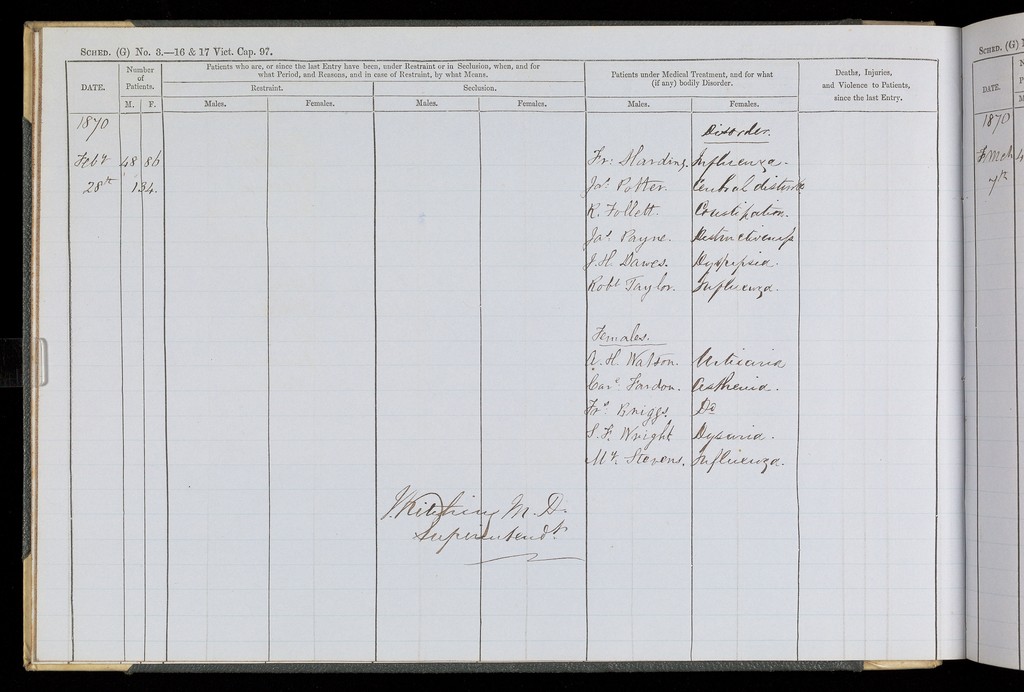 SCHED. (G) No. 3.—16 & 17 Vict. Cap. 97.
DATE.
Number of Patients.
M. F.
Patients who are, or since the last Entry have been, under Restraint or in Seclusion, when, and for
what Period, and Reasons, and in case of Restraint, by what Means.
Restraint.
Seclusion.
Males. Females. Males. Females.
Patients under Medical Treatment, and for what
(if any) bodily Disorder.
Males. Females.
Deaths, Injuries,
and Violence to Patients,
since the last Entry.
1870
Disorder.
Feby 48 86 Fr: Harding. Influenza.
28th 134. Jas. Potter.
R. Follett. Constipation.
Jas. Payne. Destructiveness
J. H. Dawes. Dyspepsia.
Robt Taylor. Influenza.
Females.
A. H. Watson. Urticaria
Care. Fardon. Asthenia.
Frs. Briggs. Do
S. F. Wright Dysuria.
My. Stevens. Influenza.
J. Kitching M.D.
Superintendt.
SCHED. (G)
DATE.
1870
7th